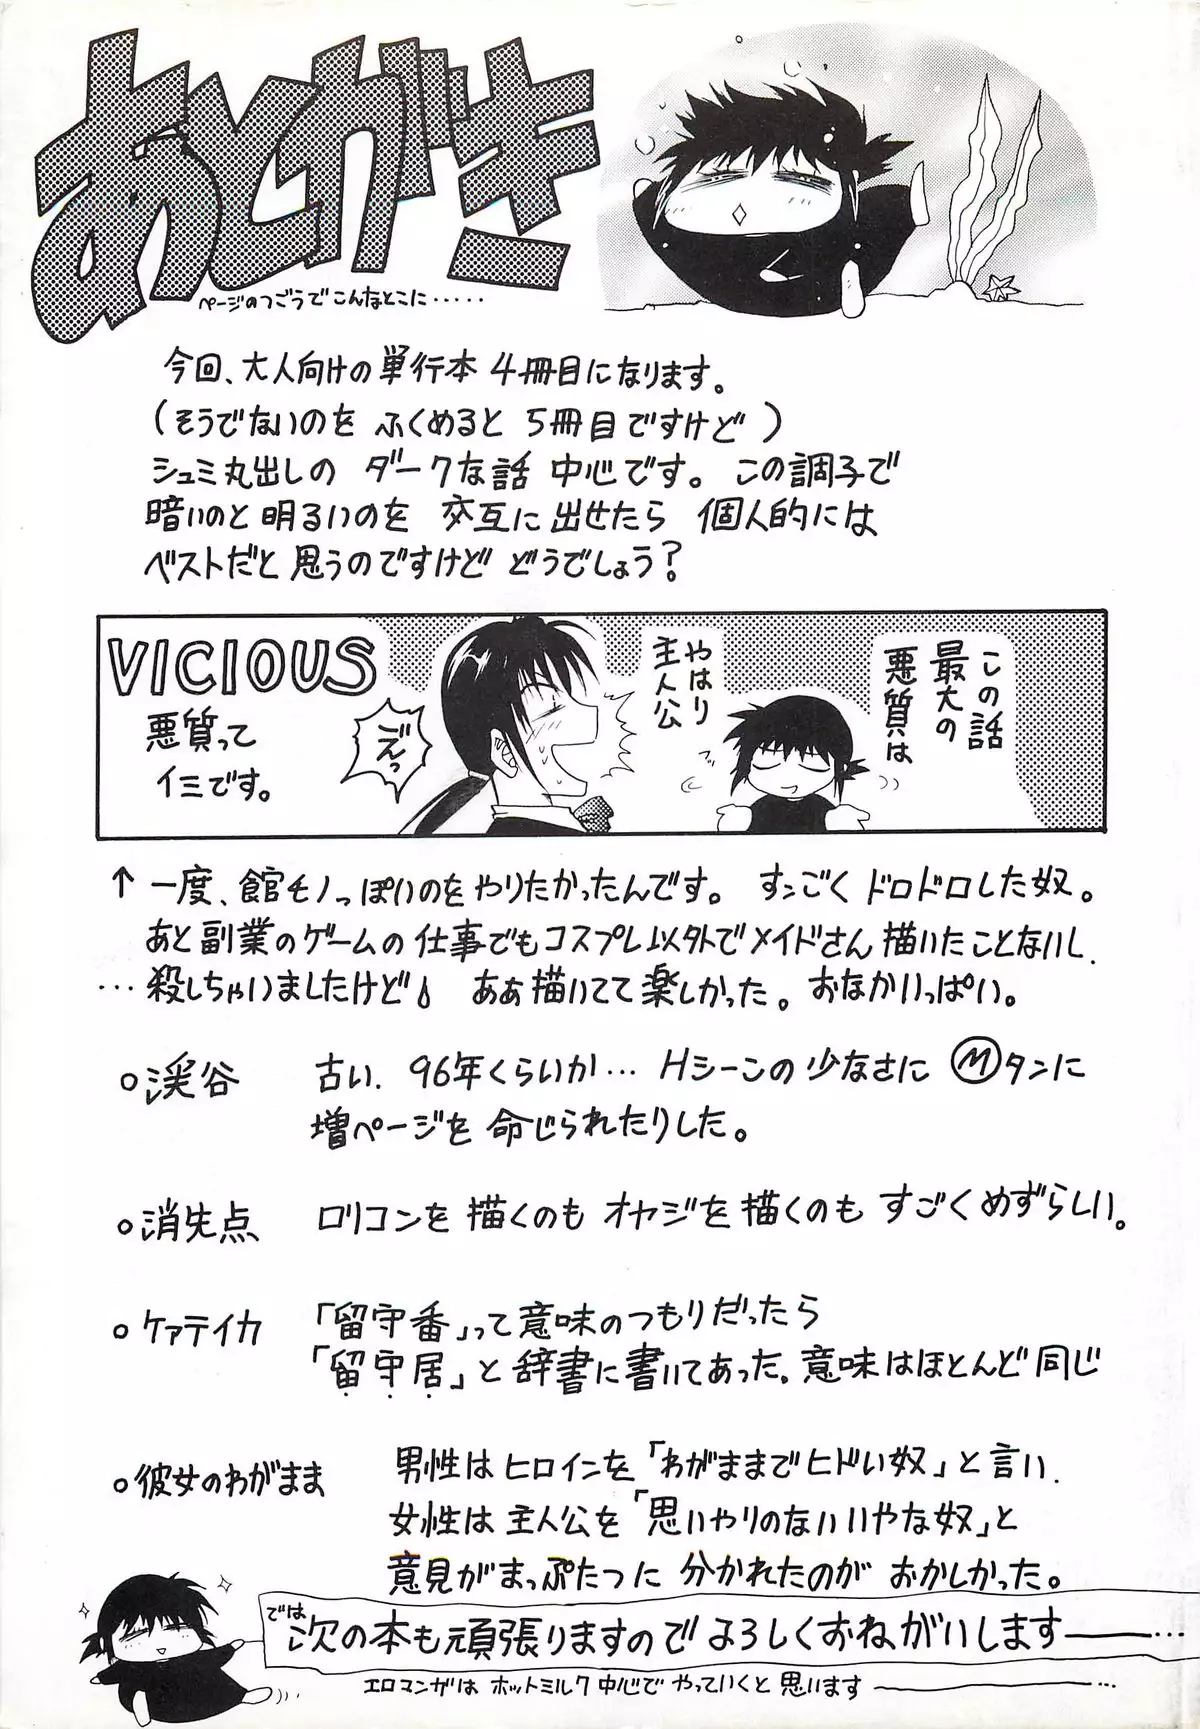 あとがき
ページのつごうでこんなとこに・・・・・
今回、大人向けの単行本 4冊目になります。
(そうでないのを ふくめると 5冊目ですけど)
シュミ丸出しの ダークな話 中心です。この調子で
暗いのと 明るいのを 交互に 出せたら 個人的には
ベストだと 思うのですけど どうでしょう?
VICIOUS
悪質って
イミです。
ごえっ
この話
最大の
悪質は
やはり
主人公
↑ 一度、館モノっぽいのを やりたかったんです。 すンごく ドロドロした奴。
あと 副業のゲームの 仕事でも コスプレ以外で メイドさん 描いたことないし、
… 殺しちゃいましたけど ああ 描いてて 楽しかった。 おなかいっぱい。
○ 渓谷 古い、96年くらいか… Hシーンの 少なさに Ⓜタンに
増ページを 命じられたりした。
○ 消失点 ロリコンを 描くのも オヤジを 描くのも すごくめずらしい。
○ ケアテイカ 「留守番」って 意味のつもりだったら
「留守居」と 辞書に 書いてあった。意味はほとんど 同じ
○ 彼女のわがまま 男性は ヒロインを 「わがままでヒドい奴」と 言い、
女性は 主人公を 「思いやりのない いやな奴」と
意見が まっぷたつに 分かれたのが おかしかった。
では
次の本も 頑張りますので よろしくおねがいします――…
エロマンガは ホットミルク 中心で やっていくと 思います――…